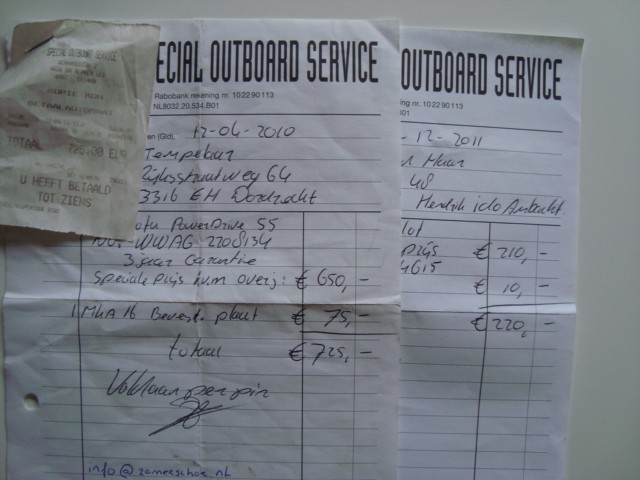 SPECIAL OUTBOARD SERVICE
TOTAAL 725,00 EUR
U HEEFT BETAALD
TOT ZIENS
ECIAL OUTBOARD SERVICE
Rabobank rekening nr. 10 22 90 113
NL8032.20.534.B01
en (Gld), 12-04-2010
Tempelaar
Rijksstraatweg 64
3316 EH Dordrecht
PowerDrive 55
WWAG 2208134
3 jaar Garantie
Speciale prijs i.v.m. overj: € 650,-
1 MKA 16 Bevest. plaat € 75,-
totaal € 725,-
Voldaan per pin
info@
OUTBOARD SERVICE
rekening nr. 10 22 90 113
B01
- 12-2011
48
Hendrik ido Ambacht
lot
prijs € 210,-
4615
€ 10,-
€ 220,-